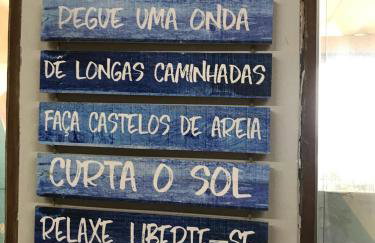 PEGUE UMA ONDA
DÊ LONGAS CAMINHADAS
FAÇA CASTELOS DE AREIA
CURTA O SOL
RELAXE LIBERTE-SE